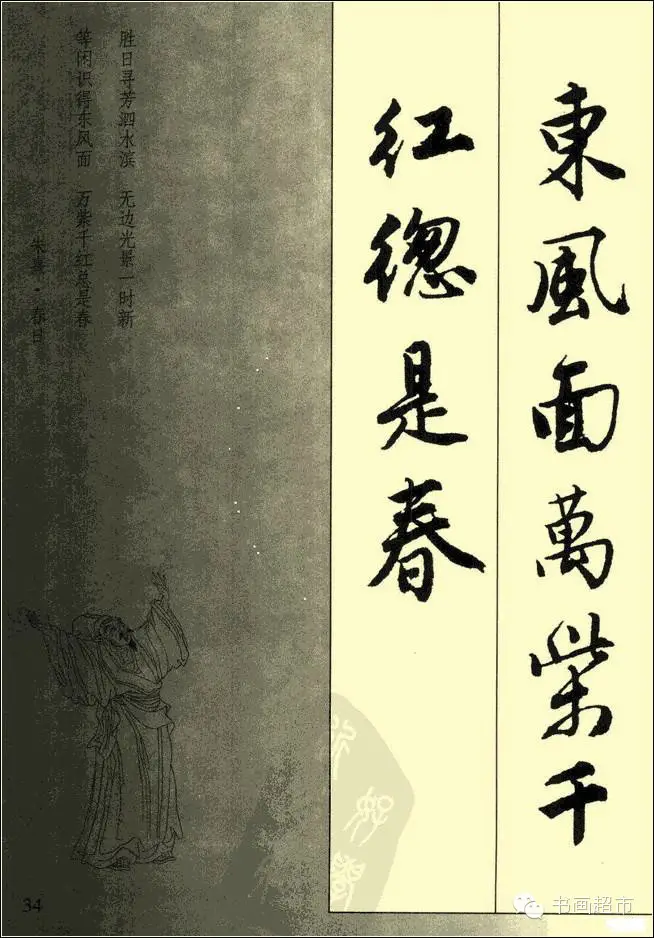 東風面萬柴千
紅總是春
胜日寻芳泗水滨　无边光景一时新
等闲识得东风面　万紫千红总是春
朱熹·春日
34
书画超市